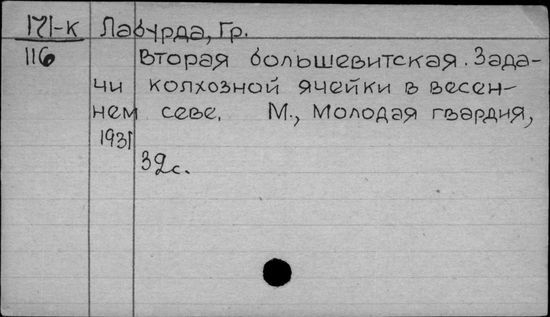 171-к Лабурда, Гр.
116 Вторая большевитская. Зада-
чи колхозной ячейки в весен-
нем севе. М., Молодая гвардия,
1931
32с.